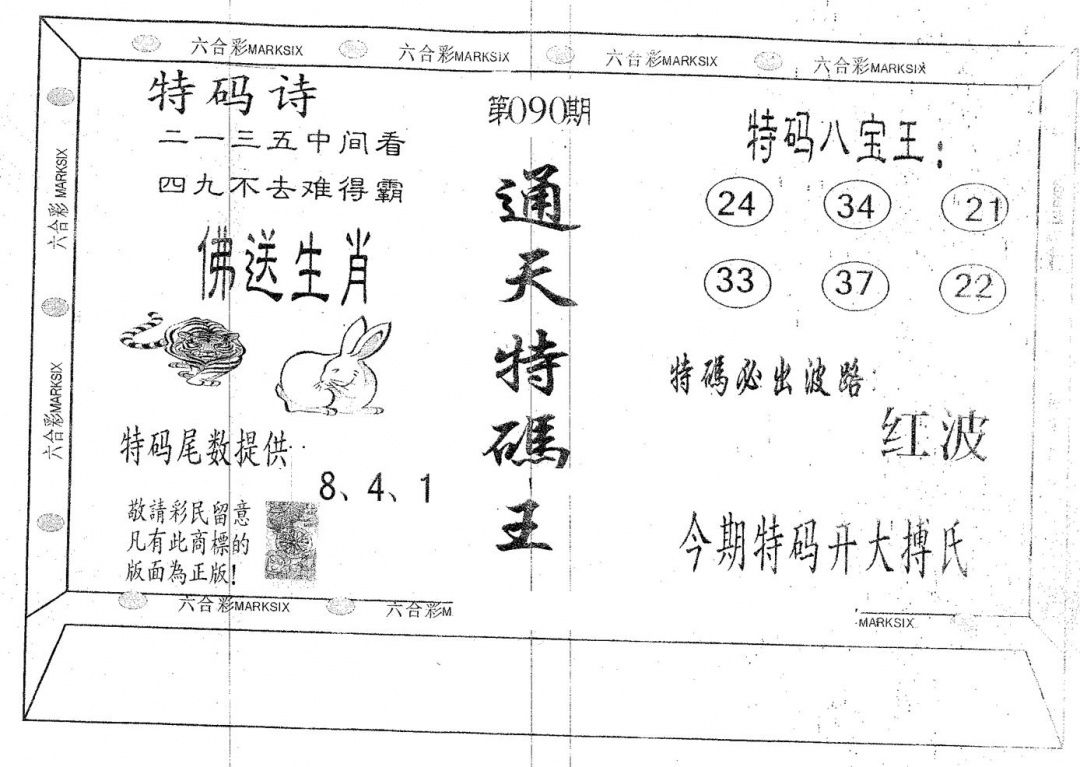 六合彩MARKSIX 六合彩MARKSIX 六合彩MARKSIX 六合彩MARKSIX
六合彩 MARKSIX
六合彩MARKSIX
特码诗
二一三五中间看
四九不去难得霸
佛送生肖
特码尾数提供:
8、4、1
敬請彩民留意
凡有此商標的
版面為正版!
第090期
通天特碼王
特码八宝王:
24 34 21
33 37 22
特碼必出波路:
红波
今期特码开大搏氏
六合彩MARKSIX 六合彩M
MARKSIX